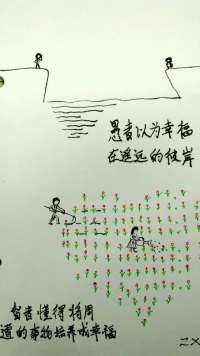 愚者以为幸福
在遥远的彼岸
智者懂得将周
遭的事物培养成幸福
ZX